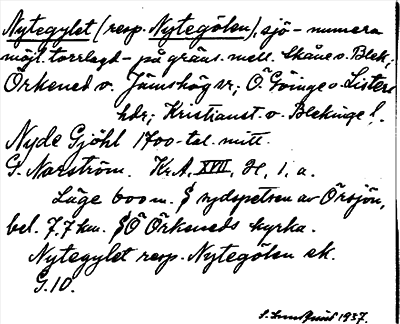 Nytegylet (resp. Nytegölen), sjö - numera
möjl. torrlagd - på gräns. mell. Skåne o. Blek.;
Örkened o. Jämshög sr; Ö. Göinge o. Listers
hdr; Kristianst. o. Blekinge l.
Nyde Gjöhl 1700-tal. mitt.
G. Narström. Kr.A. XVII, H, 1, a.
Läge 600 m. S sydspetsen av Örsjön,
bel. 7,7 km. SÖ Örkeneds kyrka.
Nytegylet resp. Nytegölen ek.
G.10.
S. Lundquist 1937.